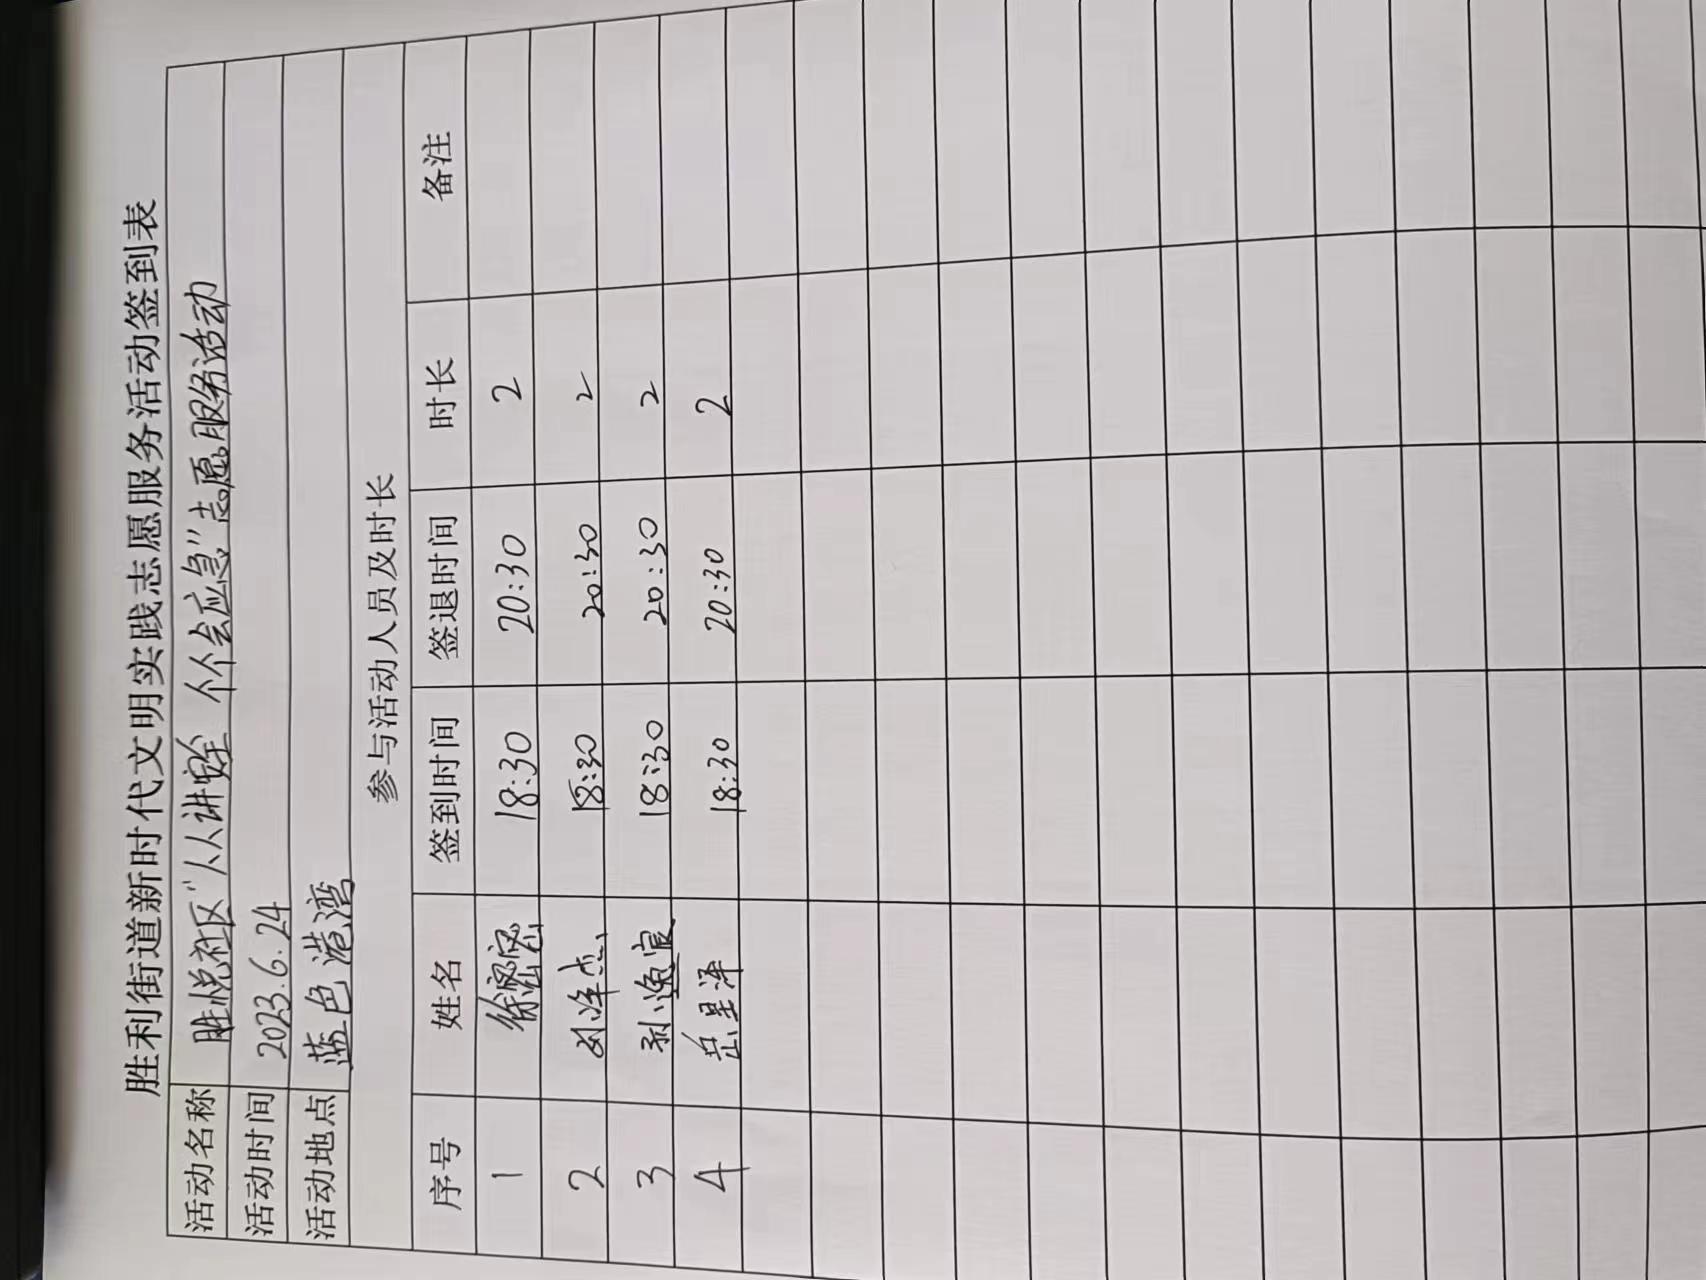 胜利街道新时代文明实践志愿服务活动签到表
活动名称 胜悦社区"人人讲安全 个个会应急"志愿服务活动
活动时间 2023.6.24
活动地点 蓝色港湾
参与活动人员及时长
序号 姓名 签到时间 签退时间 时长 备注
1 徐密密 18:30 20:30 2
2 刘洋杰 18:30 20:30 2
3 孙逸宸 18:30 20:30 2
4 岳星泽 18:30 20:30 2